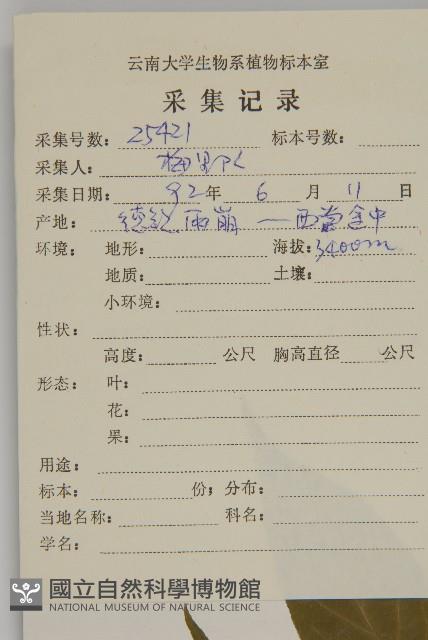 云南大学生物系植物标本室
采集记录
采集号数: 25421 标本号数:
采集人:
采集日期: 92年 6 月 11 日
产地: 德钦 雨崩 — 西当途中
环境: 地形: 海拔: 3400m
地质: 土壤:
小环境:
性状:
高度: 公尺 胸高直径 公尺
形态: 叶:
花:
果:
用途:
标本: 份; 分布:
当地名称: 科名:
学名:
國立自然科學博物館
NATIONAL MUSEUM OF NATURAL SCIENCE